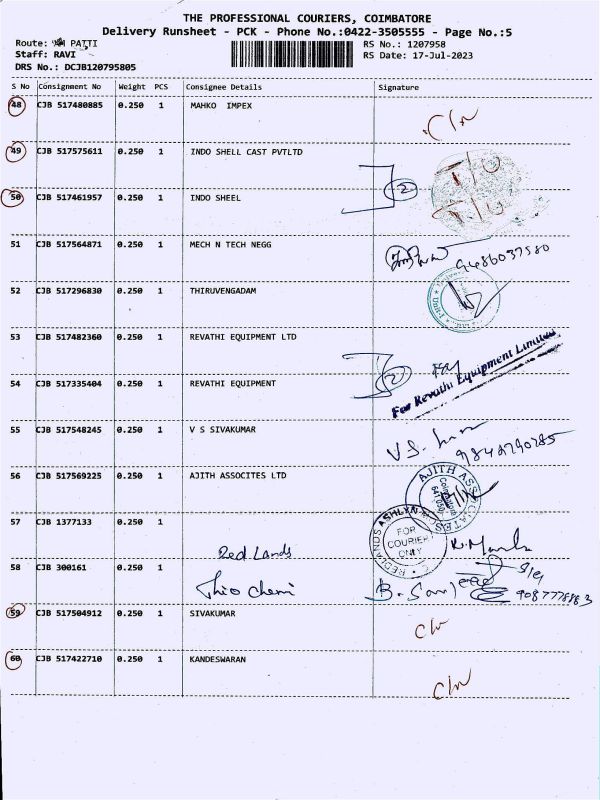 THE PROFESSIONAL COURIERS, COIMBATORE
Delivery Runsheet - PCK - Phone No.:0422-3505555 - Page No.:5
Route: PATTI RS No.: 1207958
Staff: RAVI RS Date: 17-Jul-2023
DRS No.: DCJB120795805
S No Consignment No Weight PCS Consignee Details Signature
48 CJB 517480885 0.250 1 MAHKO IMPEX C/N
49 CJB 517575611 0.250 1 INDO SHELL CAST PVTLTD T/U
50 CJB 517461957 0.250 1 INDO SHEEL 2 T/U
51 CJB 517564871 0.250 1 MECH N TECH NEGG 9486037580
52 CJB 517296830 0.250 1 THIRUVENGADAM
53 CJB 517482360 0.250 1 REVATHI EQUIPMENT LTD
For Revathi Equipment Limited
54 CJB 517335404 0.250 1 REVATHI EQUIPMENT 2
55 CJB 517548245 0.250 1 V S SIVAKUMAR V.S.
56 CJB 517569225 0.250 1 AJITH ASSOCITES LTD
AJITH ASSOCIATES Coimbatore 641 050
57 CJB 1377133 0.250 1
Red Lands
REDLANDS ASHLYN FOR COURIER ONLY
58 CJB 300161 0.250 1
Thio Chemi B. Sanjeev
59 CJB 517504912 0.250 1 SIVAKUMAR C/N
60 CJB 517422710 0.250 1 KANDESWARAN C/N